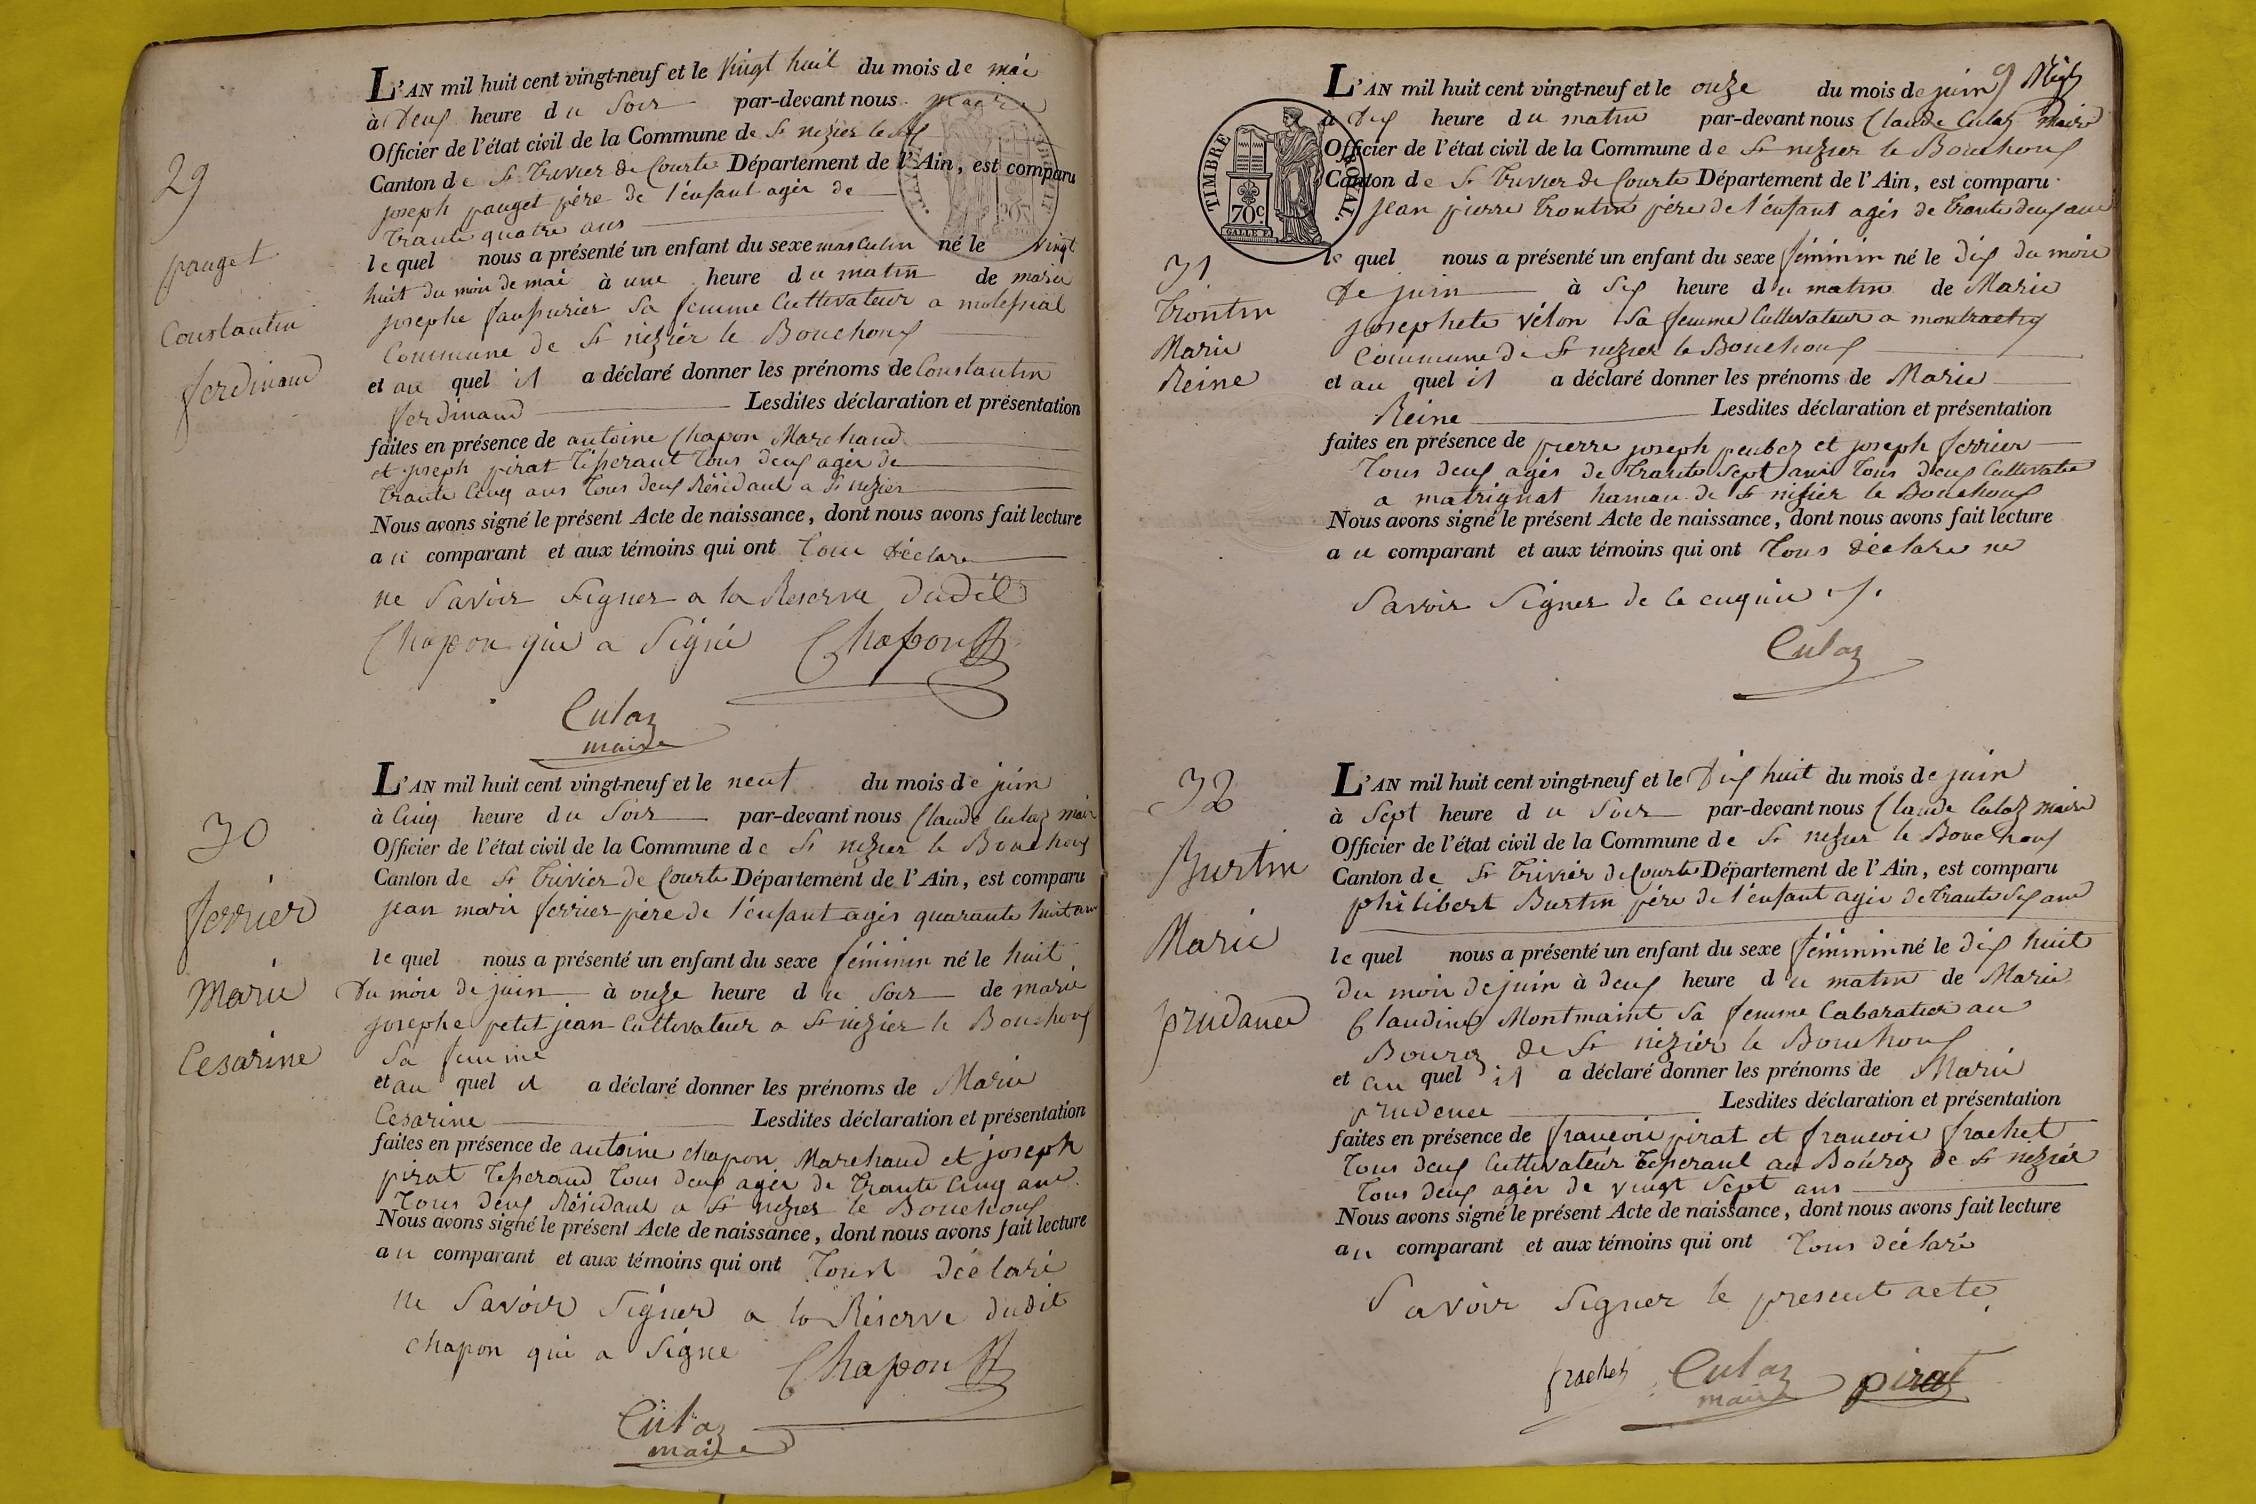 29
pauget
Constantin
ferdinand
L'AN mil huit cent vingt-neuf et le vingt huit du mois de mai
à Deux heure du Soir par-devant nous maire
Officier de l'état civil de la Commune de St nezier le
Canton de St Trivier de Courte Département de l'Ain, est comparu
joseph pauget père de l'enfant agér de
trante quatre ans
le quel nous a présenté un enfant du sexe masculin né le vingt
huit du moi de mai à une heure du matin de marie
josephe sa femme Cultivateur a
Commune de St nezier le Bouchoux
et au quel il a déclaré donner les prénoms de Constantin
ferdinand Lesdites déclaration et présentation
faites en présence de antoine Chapon Marchand
et joseph pirat Tisserant tous deux agér de
trante Cinq ans tous deux Résidant a St nezier
Nous avons signé le présent Acte de naissance, dont nous avons fait lecture
au comparant et aux témoins qui ont tous Déclare
ne Savoir Signer a la Reserve dudit
Chapon qui a Signé Chapon
Culaz
maire
30
ferrier
Marie
Cesarine
L'AN mil huit cent vingt-neuf et le neuf du mois de juin
à Cinq heure du Soir par-devant nous Claude Culaz mair
Officier de l'état civil de la Commune de St nezier le Bouchoux
Canton de St Trivier de Courte Département de l'Ain, est comparu
jean marie ferrier père de l'enfant agér quarante huit an
le quel nous a présenté un enfant du sexe féminin né le huit
Du moi de juin à onze heure du Soir de marie
josephe petit jean Cultivateur a St nezier le Bouchoux
Sa femme
et au quel il a déclaré donner les prénoms de Marie
Cesarine Lesdites déclaration et présentation
faites en présence de antoine chapon Marchand et joseph
pirat Tisserand tous deux agér de trante Cinq ans
tous deux Résidant a St nezier le Bouchoux
Nous avons signé le présent Acte de naissance, dont nous avons fait lecture
au comparant et aux témoins qui ont tous déclaré
ne Savoir Signer a la Réserve dudit
chapon qui a Signe Chapon
Culaz
maire
TIMBRE ROYAL
70 c.
31
Trontin
Marie
Reine
L'AN mil huit cent vingt-neuf et le onze du mois de juin
à Dix heure du matin par-devant nous Claude Culaz maire
Officier de l'état civil de la Commune de St nezier le Bouchoux
Canton de St Trivier de Courte Département de l'Ain, est comparu
jean pierre Trontin père de l'enfant agér de trante deux ans
le quel nous a présenté un enfant du sexe féminin né le dix du moi
de juin à Six heure du matin de Marie
josephete Vélon Sa femme Cultivateur a
Commune de St nezier le Bouchoux
et au quel il a déclaré donner les prénoms de Marie
Reine Lesdites déclaration et présentation
faites en présence de pierre joseph et joseph ferrier
tous deux agér de trante Sept ans tous deux Cultivate
a matrignat hamau de St nizier le Bouchoux
Nous avons signé le présent Acte de naissance, dont nous avons fait lecture
au comparant et aux témoins qui ont tous déclare ne
Savoir Signer de ce enquie
Culaz
32
Burtin
Marie
prudance
L'AN mil huit cent vingt-neuf et le Dix huit du mois de juin
à Sept heure du Soir par-devant nous Claude Culaz maire
Officier de l'état civil de la Commune de St nezier le Bouchoux
Canton de St Trivier de Courte Département de l'Ain, est comparu
philibert Burtin père de l'enfant agér de trante Six ans
le quel nous a présenté un enfant du sexe féminin né le dix huit
du moi de juin à deux heure du matin de Marie
Claudine Montmaint Sa femme Cabaratier au
Bourg de St nizier le Bouchoux
et au quel il a déclaré donner les prénoms de Marie
prudence Lesdites déclaration et présentation
faites en présence de francoi pirat et francoi frachet
tous deux Cultivateur Tisserant au Bourg de St nezier
tous deux agér de vingt Sept ans
Nous avons signé le présent Acte de naissance, dont nous avons fait lecture
au comparant et aux témoins qui ont tous déclaré
Savoir Signer le present acte
frachet Culaz pirat
maire